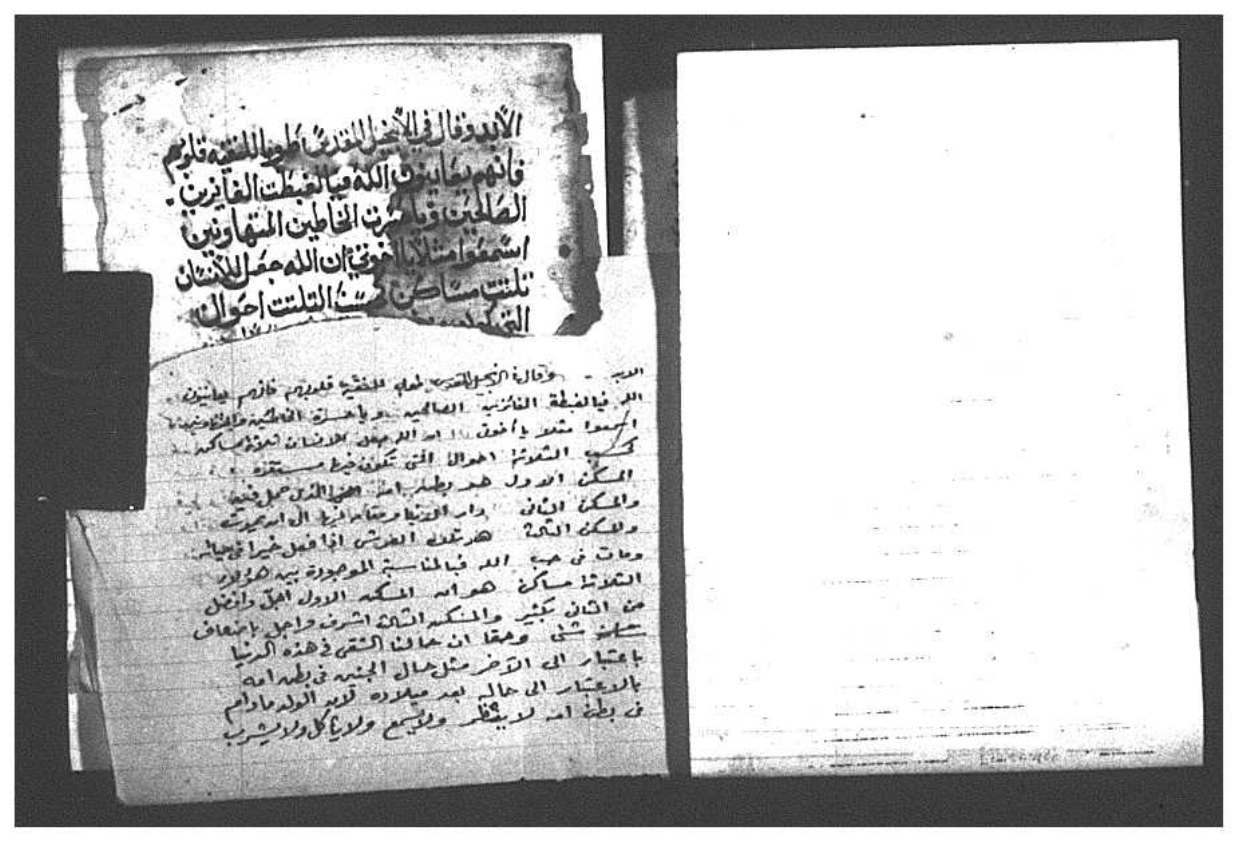 الأبد وقال في الأنجيل المقدس طوبا للنقيه قلوبهم
فانهم يعاينون الله فيالغبطت الفايزين
الصالحين ويا حسرت الخاطين المتهاونين
اسمعوا مثلا يا اخوتي ان الله جعل للأنسان
تلتت مساكن بحسب التلتت احوال
التي
الابد - وقال في الانجيل المقدس طوبى للنقيه قلوبهم فانهم يعاينون
الله فيالغبطة الفائزين الصالحين ويا حسرة الخاطيين والمتهاونين
اسمعوا مثلا يا أخوتى ان الله جعل للانسان ثلاثة مساكن
كحسب الثلاثة احوال التى تكون فيها مستقره
المسكن الاول هو بطن امه الذى حمل فيه
والمسكن الثانى دار الدنيا ومقامه فيها الى ان يموت
والمسكن الثالث هو تلك العرش اذا فعل خيرا فى حياته
ومات فى حب الله فبالمناسبة الموجودة بين هؤلاء
الثلاثة مساكن هو ان المسكن الاول اجل وافضل
من الثانى بكثير والمسكن الثالث اشرف واجل باضعاف
شتى وحقا ان حالنا الشقى فى هذه الدنيا
باعتبار الى الآخر مثل حال الجنين فى بطن امه
بالاعتبار الى حاله بعد ميلاده لان الولد ما دام
فى بطن امه لا ينظر ولا يسمع ولا يأكل ولا يشرب